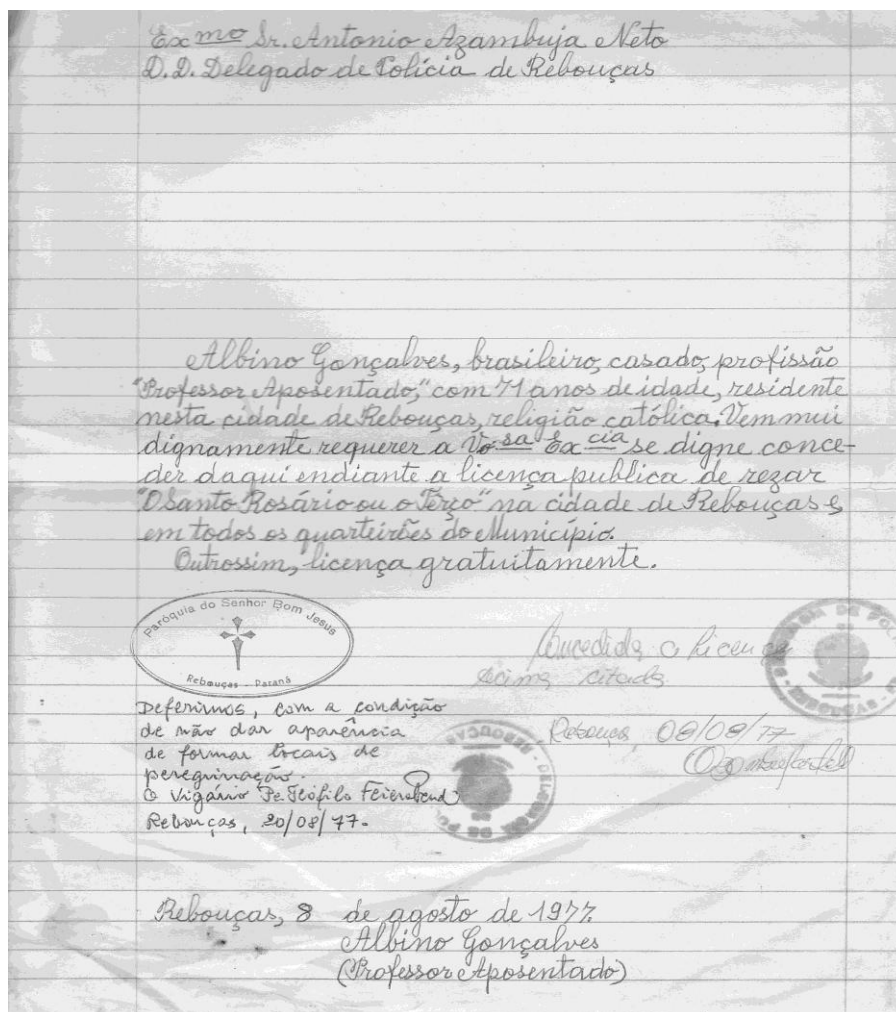 Exmo Sr. Antonio Azambuja Neto
D.D. Delegado de Polícia de Rebouças
Albino Gonçalves, brasileiro, casado, profissão
"Professor Aposentado," com 71 anos de idade, residente
nesta cidade de Rebouças, religião católica. Vem mui
dignamente requerer a Vosa Excia se digne conce-
der daqui endiante a licença publica de rezar
"O Santo Rosário ou o Têrço" na cidade de Rebouças e
em todos os quarteirões do Município.
Outrossim, licença gratuitamente.
Paróquia do Senhor Bom Jesus
Rebouças - Paraná
Concedida a licença
acima citada
Rebouças, 08/08/77
Deferimos, com a condição
de não dar aparência
de formar locais de
peregrinação.
O Vigário Pe. Teófilo
Rebouças, 20/08/77.
REBOUÇAS - DELEGACIA DE POL
Rebouças, 8 de agosto de 1977.
Albino Gonçalves
(Professor Aposentado)